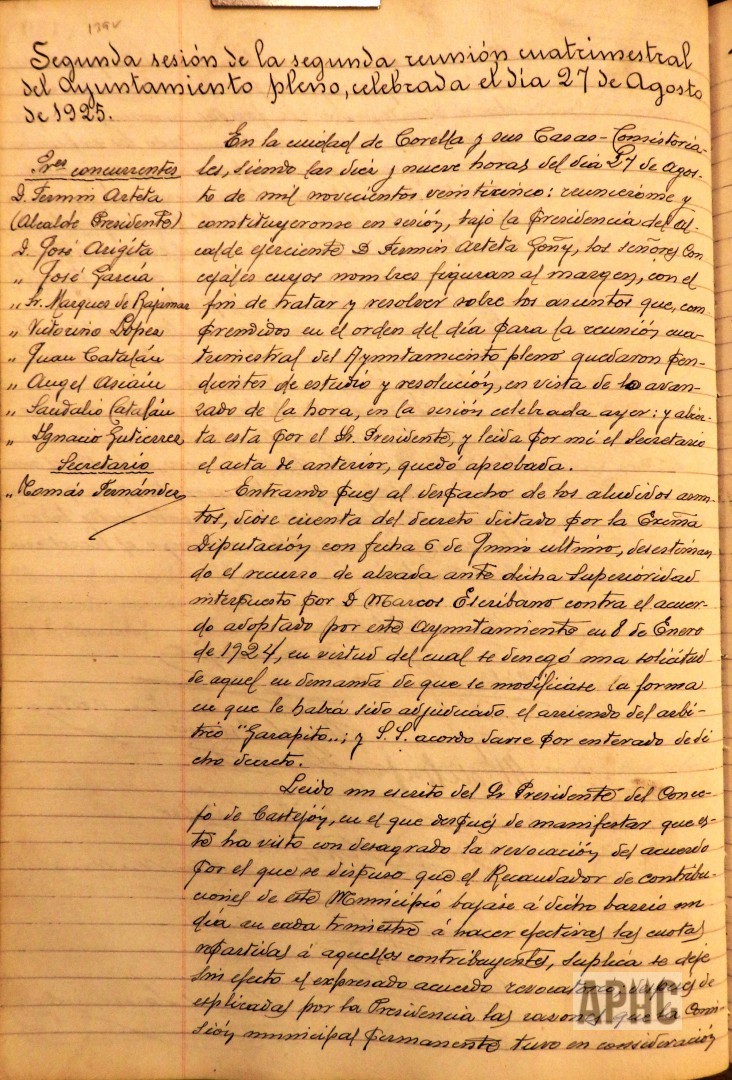 139v
Segunda sesión de la segunda reunión cuatrimestral
del Ayuntamiento pleno, celebrada el día 27 de Agosto
de 1925.
Sres concurrentes
D. Fermin Arteta
(Alcalde Presidente)
D. José Arigita
" José García
" Sr. Marques de Bajamar
" Victorino López
" Juan Catalán
" Angel Asiain
" Sandalio Catalán
" Ignacio Gutierrez
Secretario
" Tomás Fernández
En la ciudad de Corella y sus Casas-Consistoria-
les, siendo las diez y nueve horas del día 27 de Agos-
to de mil novecientos veinticinco: reunieronse y
constituyeronse en sesión, bajo la presidencia del al-
calde ejerciente D Fermin Arteta Goñy, los señores Con
cejales cuyos nombres figuran al margen, con el
fin de tratar y resolver sobre los asuntos que, com
prendidos en el orden del día para la reunión cua-
trimestral del Ayuntamiento pleno quedaron pen-
dientes de estudio y resolución, en vista de lo avan-
zado de la hora, en la sesión celebrada ayer: y abier-
ta esta por el Sr. Presidente, y leida por mi el Secretario
el acta de anterior, quedó aprobada.
Entrando pues al despacho de los aludidos asun-
tos, diose cuenta del decreto dictado por la Excma
Diputación con fecha 6 de Junio ultimo, desestiman
do el recurso de alzada ante dicha Superioridad
interpuesto por D Marcos Escribano contra el acuer-
do adoptado por este Ayuntamiento en 8 de Enero
de 1924, en virtud del cual se denegó una solicitud
de aquel en demanda de que se modificase la forma
en que le habia sido adjudicado el arriendo del arbi-
trio "Garapito"; y S.S. acordo darse por enterado de di
cho decreto.
Leido un escrito del Sr Presidente del Conce-
jo de Castejón, en el que después de manifestar que es-
te ha visto con desagrado la revocación del acuerdo
por el que se dispuso que el Recaudador de contribu-
ciones de este Municipio bajase á dicho barrio un
día en cada trimestre á hacer efectivas las cuotas
repartidas á aquellos contribuyentes, suplica se deje
sin efecto el expresado acuerdo después de
esplicadas por la Presidencia las razones que la Comi-
sión municipal permanente tuvo en consideración
APHC